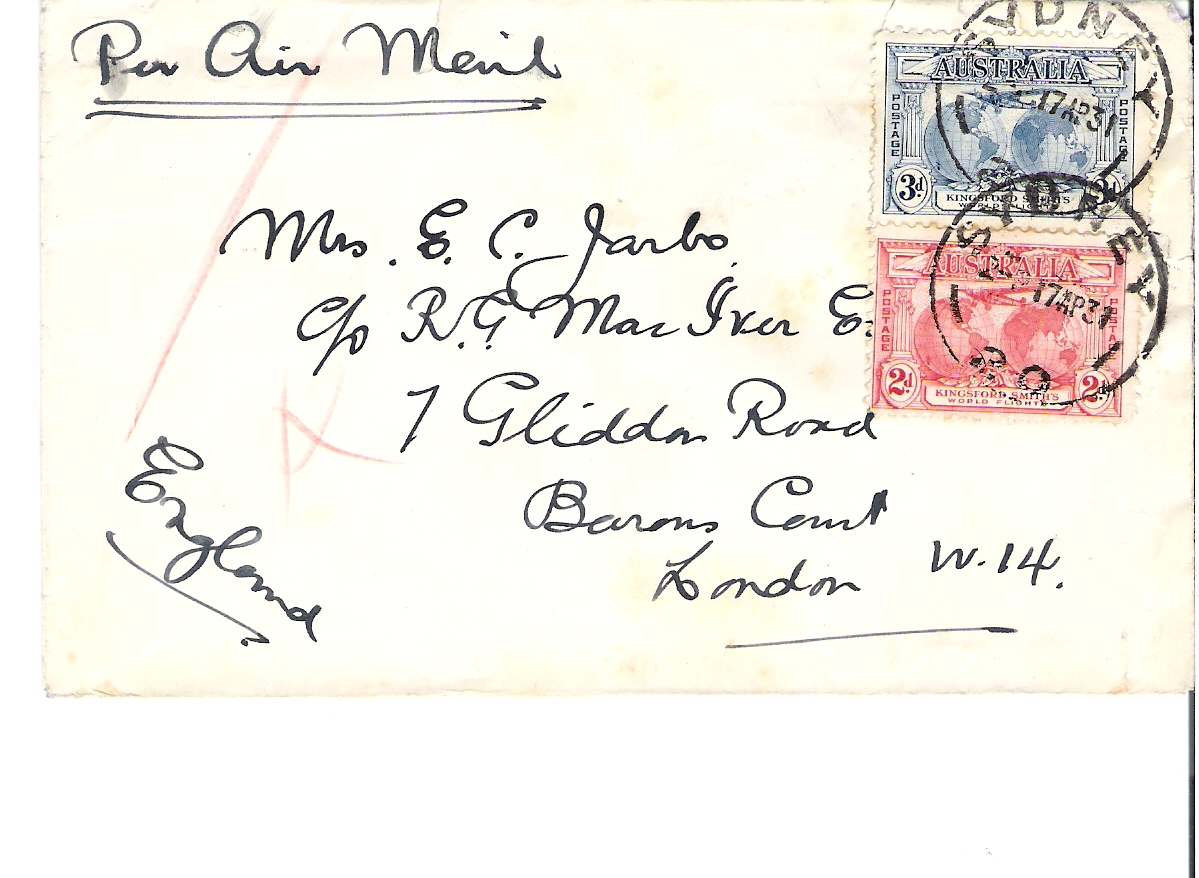 Per Air Mail
Mrs. E. C. Jarbo.
c/o R. G. MacIver
7 Gliddon Road
Barons Court
London W.14.
England
SYDNEY
17AP31
AUSTRALIA
POSTAGE
POSTAGE
3d
3d
KINGSFORD SMITH'S
WORLD FLIGHTS
SYDNEY
17AP31
AUSTRALIA
POSTAGE
POSTAGE
2d
2d
KINGSFORD SMITH'S
WORLD FLIGHTS